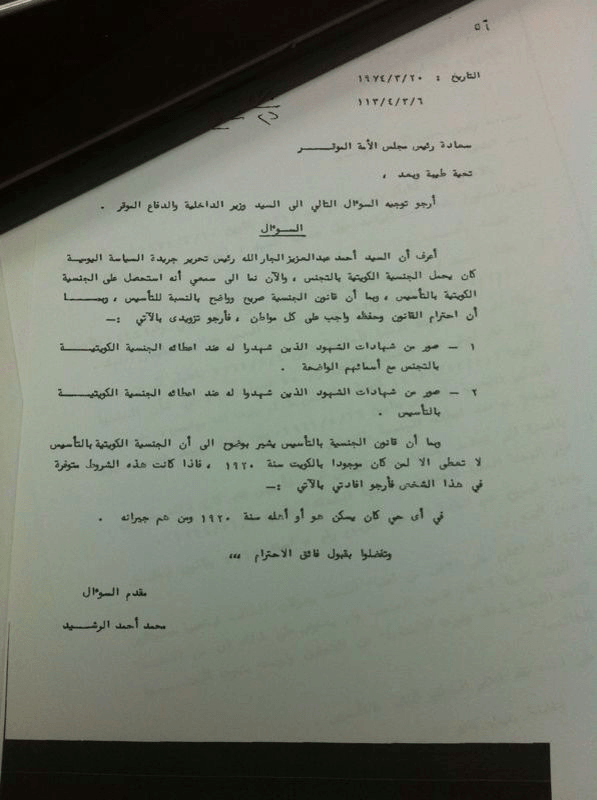 ٥٦
التاريخ : ١٩٧٤/٣/٢٠
١١٣/٤/٣/٦
سعادة رئيس مجلس الأمة الموقر
تحية طيبة وبعد ،
أرجو توجيه السؤال التالي الى السيد وزير الداخلية والدفاع الموقر .
السؤال
أعرف أن السيد أحمد عبدالعزيز الجار الله رئيس تحرير جريدة السياسة اليومية
كان يحمل الجنسية الكويتية بالتجنس ، والآن نما الى سمعي أنه استحصل على الجنسية
الكويتية بالتأسيس ، وبما أن قانون الجنسية صريح وواضح بالنسبة للتأسيس ، وبما
أن احترام القانون وحفظه واجب على كل مواطن ، فأرجو تزويدى بالآتي :ــ
١ ــ صور من شهادات الشهود الذين شهدوا له عند اعطائه الجنسية الكويتية
بالتجنس مع أسمائهم الواضحة .
٢ ــ صور من شهادات الشهود الذين شهدوا له عند اعطائه الجنسية الكويتية
بالتأسيس .
وبما أن قانون الجنسية بالتأسيس يشير بوضوح الى أن الجنسية الكويتية بالتأسيس
لا تعطى الا لمن كان موجودا بالكويت سنة ١٩٢٠ ، فاذا كانت هذه الشروط متوفرة
في هذا الشخص فأرجو افادتي بالآتي :ــ
في أى حي كان يسكن هو أو أهله سنة ١٩٢٠ ومن هم جيرانه .
وتفضلوا بقبول فائق الاحترام ،،،
مقدم السؤال
محمد أحمد الرشيد